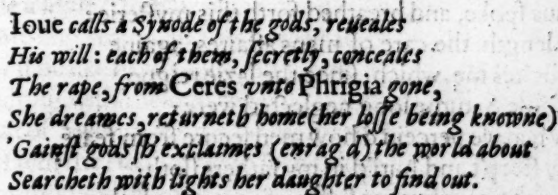 Ioue calls a Synode of the gods, reueales
His will: each of them, ſecretly, conceales
The rape, from Ceres vnto Phrigia gone,
She dreames, returneth home (her loſſe being knowne)
'Gainſt gods ſh exclaimes (enrag d) the world about
Searcheth with lights her daughter to find out.